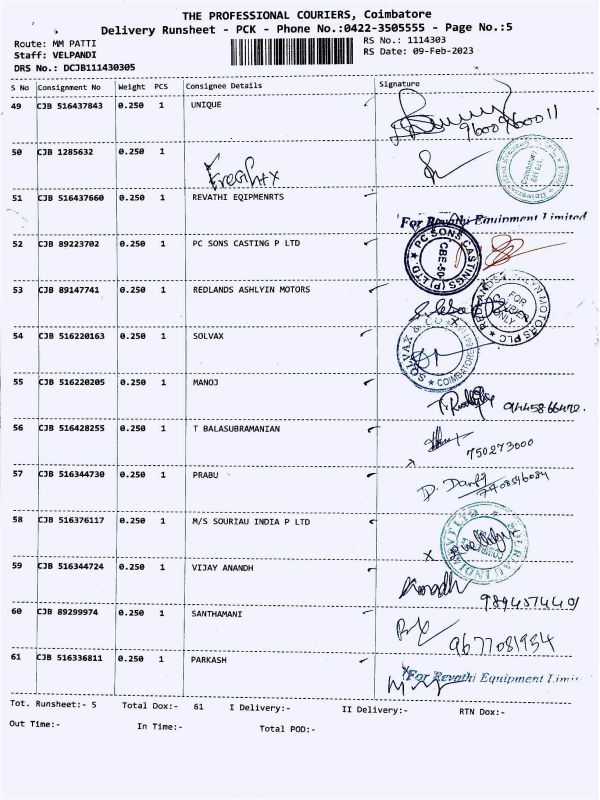 THE PROFESSIONAL COURIERS, Coimbatore
Delivery Runsheet - PCK - Phone No.:0422-3505555 - Page No.:5
Route: MM PATTI
RS No.: 1114303
Staff: VELPANDI
RS Date: 09-Feb-2023
DRS No.: DCJB111430305
S No Consignment No Weight PCS Consignee Details Signature
49 CJB 516437843 0.250 1 UNIQUE
9600960011
50 CJB 1285632 0.250 1
51 CJB 516437660 0.250 1 REVATHI EQIPMENRTS
For Revathi Equipment Limited
52 CJB 89223702 0.250 1 PC SONS CASTING P LTD
PC SONS CASTINGS (P) LTD. CBE-50
53 CJB 89147741 0.250 1 REDLANDS ASHLYIN MOTORS
FOR COURIER ONLY MOTORS PLC
54 CJB 516220163 0.250 1 SOLVAX
SOLVAX & CO COIMBATORE
55 CJB 516220205 0.250 1 MANOJ
56 CJB 516428255 0.250 1 T BALASUBRAMANIAN
750273000
57 CJB 516344730 0.250 1 PRABU
58 CJB 516376117 0.250 1 M/S SOURIAU INDIA P LTD
59 CJB 516344724 0.250 1 VIJAY ANANDH
9894574401
60 CJB 89299974 0.250 1 SANTHAMANI
9677081954
61 CJB 516336811 0.250 1 PARKASH
For Revathi Equipment Limi
Tot. Runsheet:- 5 Total Dox:- 61 I Delivery:- II Delivery:- RTN Dox:-
Out Time:- In Time:- Total POD:-